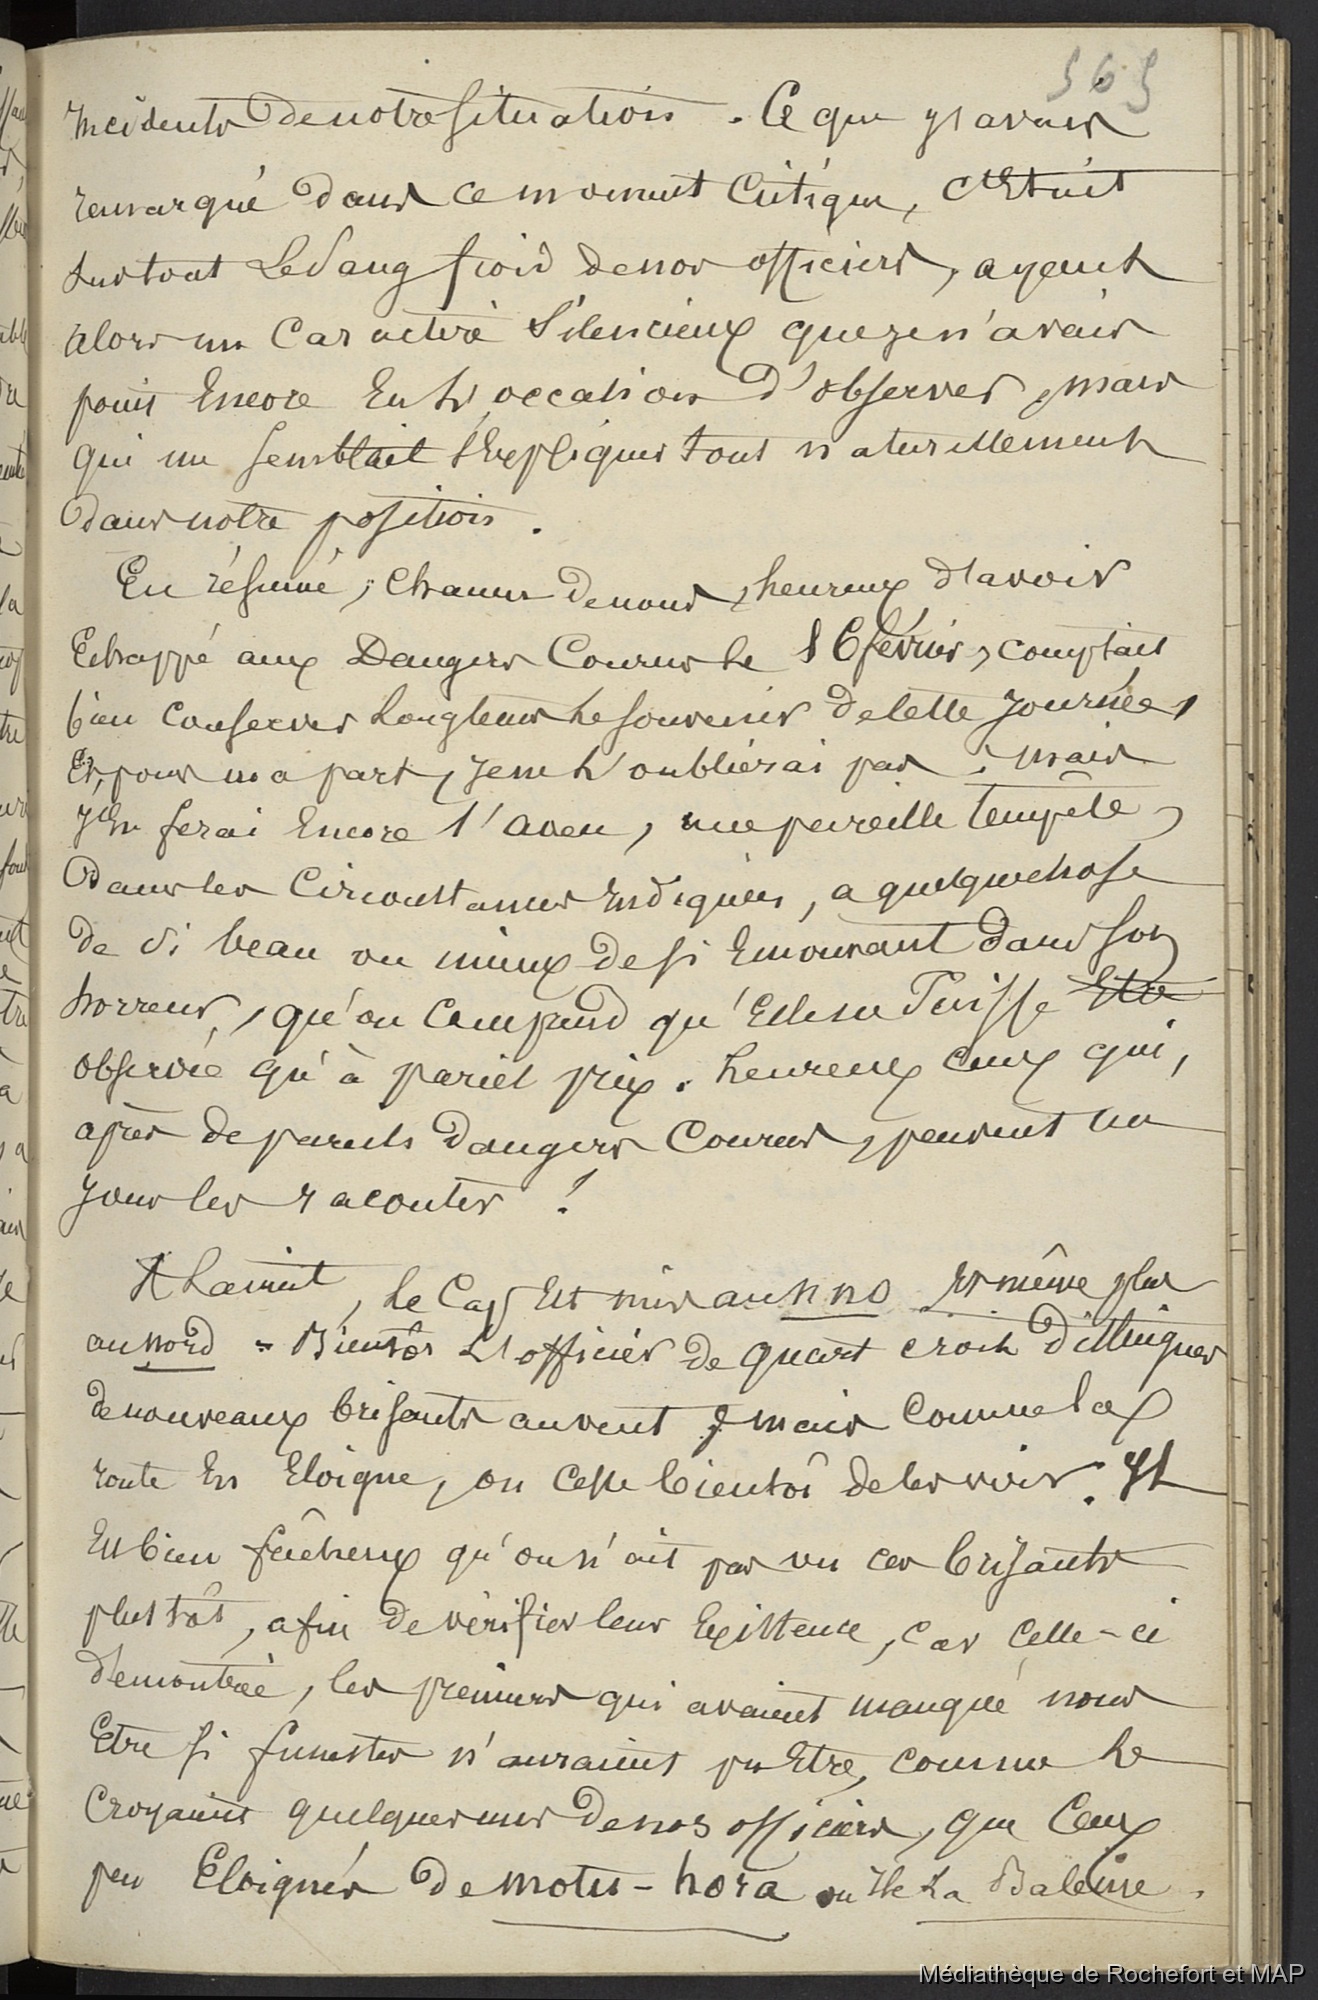 565
incidents de notre situation. Ce que j'avais
remarqué dans ce moment critique, c'Etait
surtout Le Sang froid de nos officiers, ayant
alors un Caractère Silencieux que je n'avais
point Encore Eu l'occasion d'observer, mais
qui me semblait s'Expliquer tout naturellement
dans notre position.
En résumé, chacun de nous, heureux d'avoir
Echappé aux Dangers Courus le 16 février, comptait
bien conserver longtems le souvenir de cette journée,
Et, pour ma part, je ne l'oublierai pas, mais
j'En ferai Encore l'aveu, une pareille tempête,
Dans les Circonstances indiquées, a quelque chose
de si beau ou mieux de si Emouvant dans son
horreur, qu'on comprend qu'Elle ne Puisse Etre
observée qu'à pariel prix. heureux ceux qui,
après de pareils dangers Courus, peuvent un
jour les raconter !
A Laminit, le Cap Est mis au N NO Et même plus
au nord = Bientôt L'officier de quart croit Distinguer
de nouveaux brisants au vent, mais comme la
route En Eloigne, on cesse bientôt de les voir. Il
Est bien fâcheux qu'on n'ait pas vu ces brisants
plus tôt, afin de vérifier leur Existence, car celle-ci
démontrée, les premiers qui avaient manqué nous
Etre si funestes n'auraient pu Etre, comme le
Croyaient quelques uns de nos officiers, que Ceux
peu Eloignés de Motu-hora ou Ile La Baleine.
Médiathèque de Rochefort et MAP